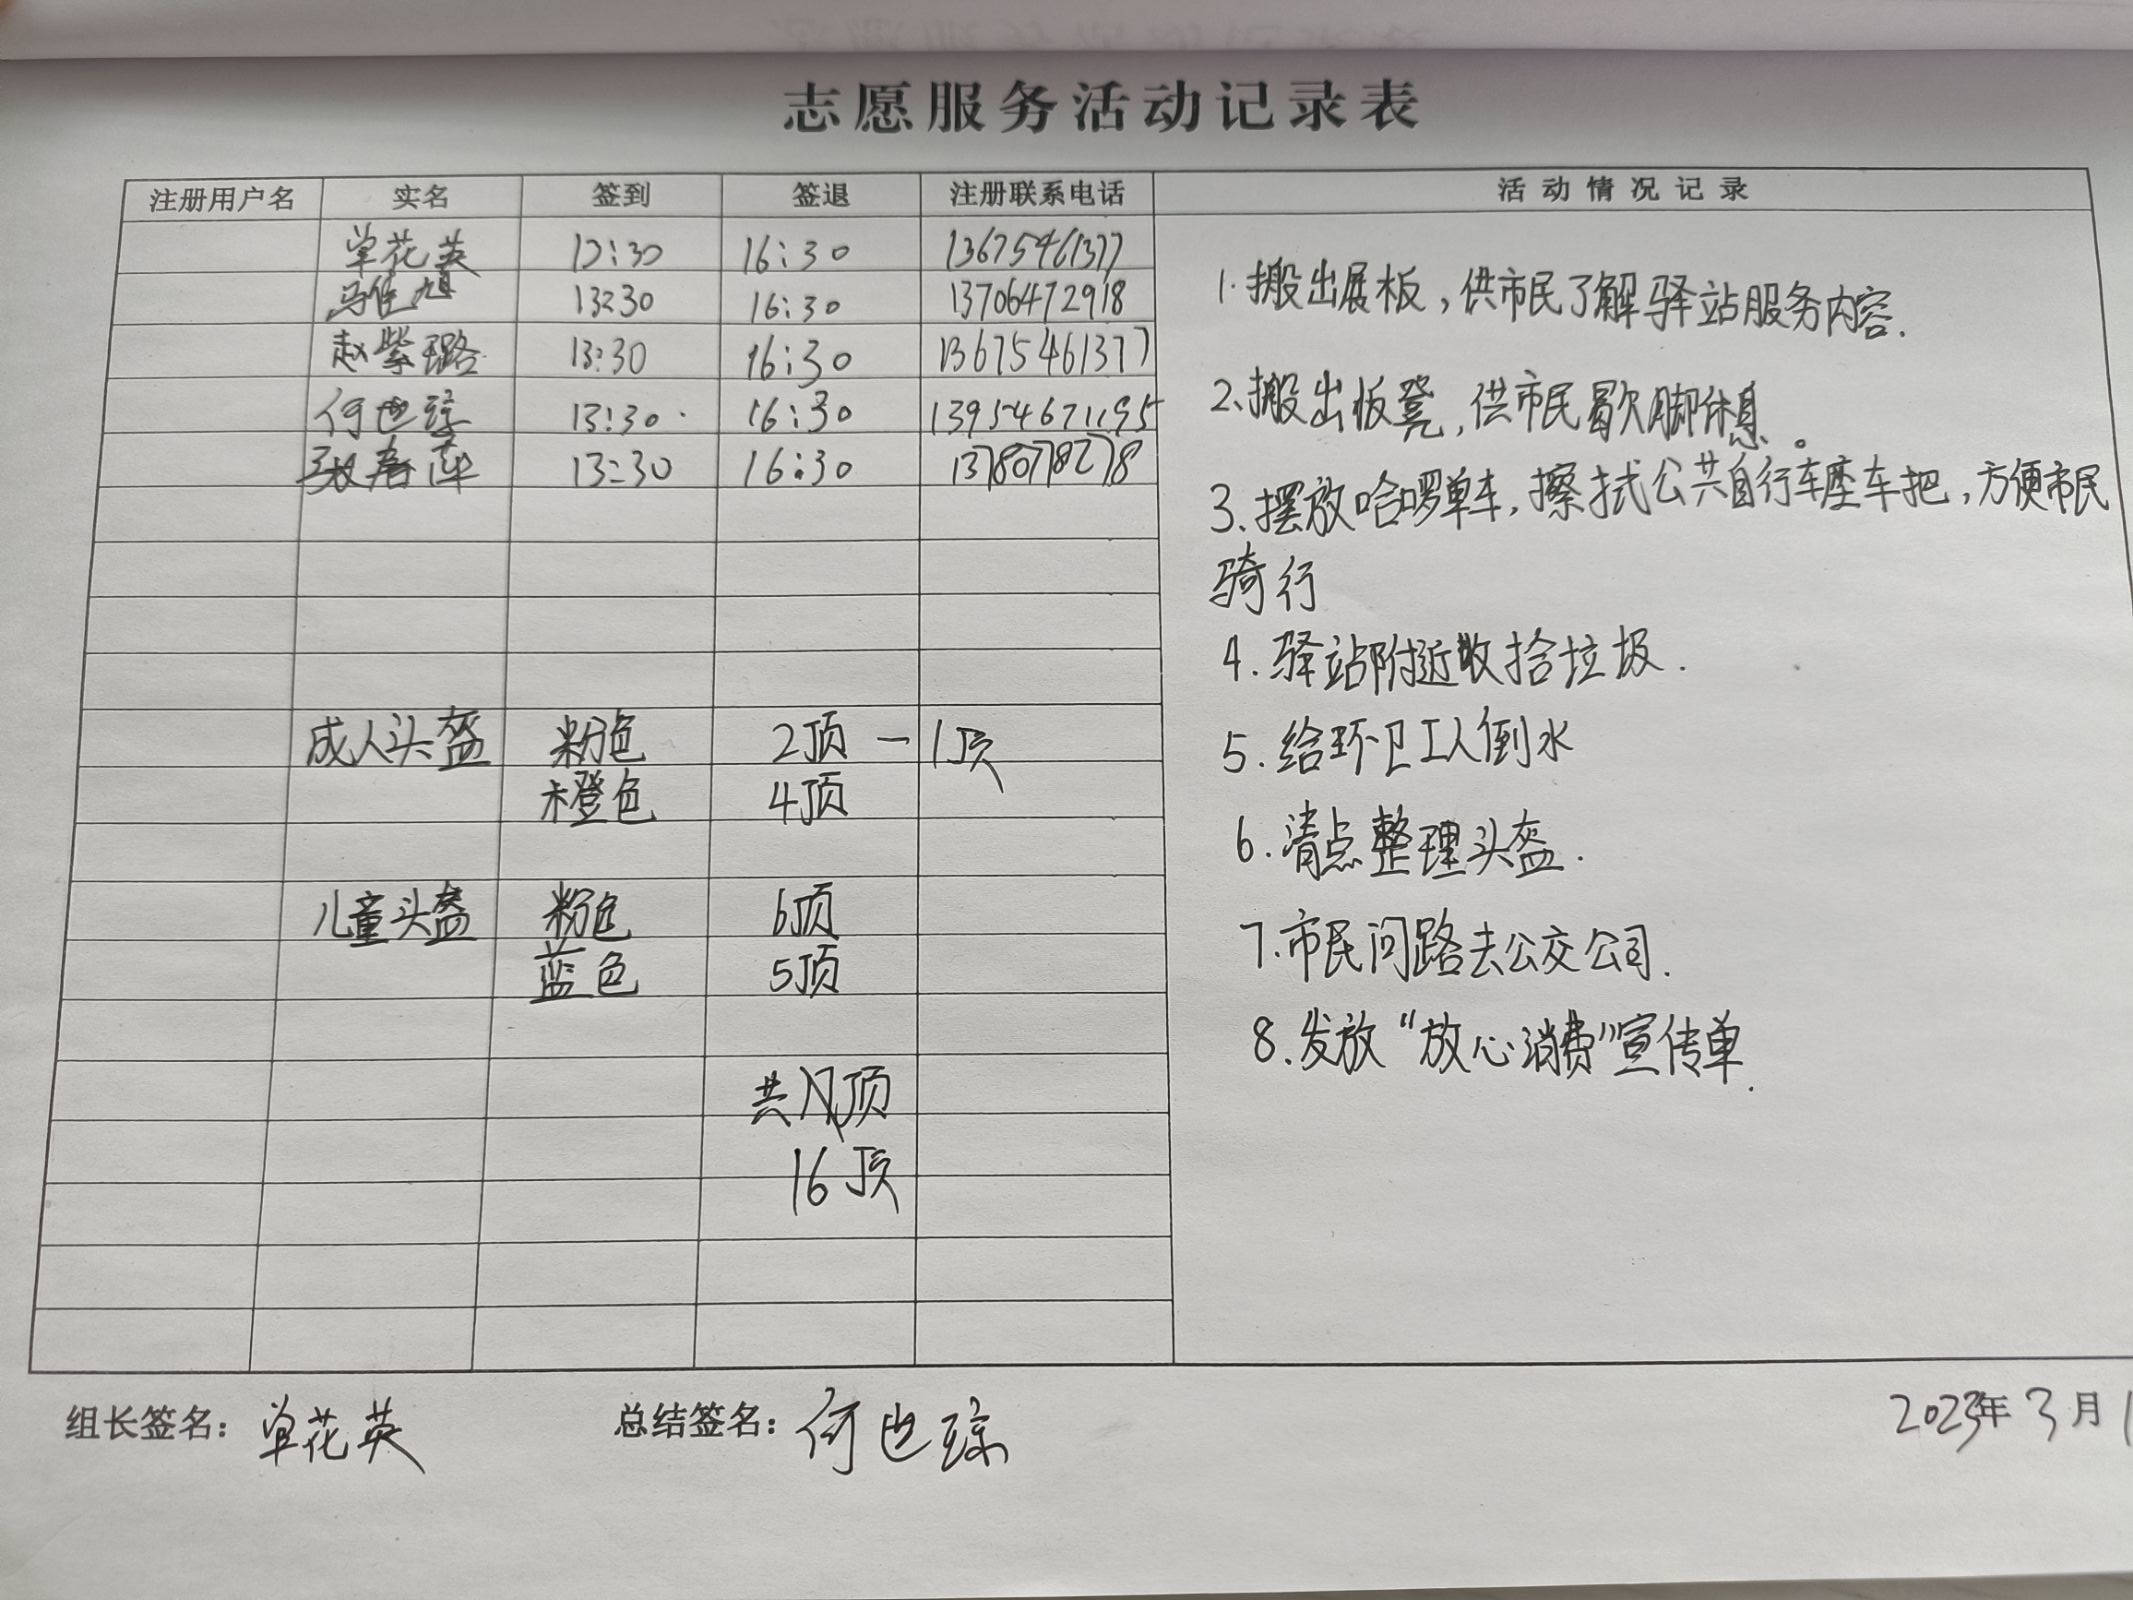 志愿服务活动记录表
注册用户名 实名 签到 签退 注册联系电话 活动情况记录
单花英 13:30 16:30 13675461377
马佳旭 13:30 16:30 13706472918
赵紫璐 13:30 16:30 13675461377
何也琼 13:30 16:30 13954671195
张春萍 13:30 16:30 13780778278
成人头盔 粉色 2顶 — 1顶
橙色 4顶
儿童头盔 粉色 6顶
蓝色 5顶
共 顶
16顶
1.搬出展板,供市民了解驿站服务内容.
2、搬出板凳,供市民歇脚休息。
3、摆放哈啰单车,擦拭公共自行车座车把,方便市民
骑行
4.驿站附近收拾垃圾.
5.给环卫工人倒水
6.清点整理头盔.
7.市民问路去公交公司.
8.发放“放心消费”宣传单.
组长签名: 单花英 总结签名: 何也琼 2023年3月1